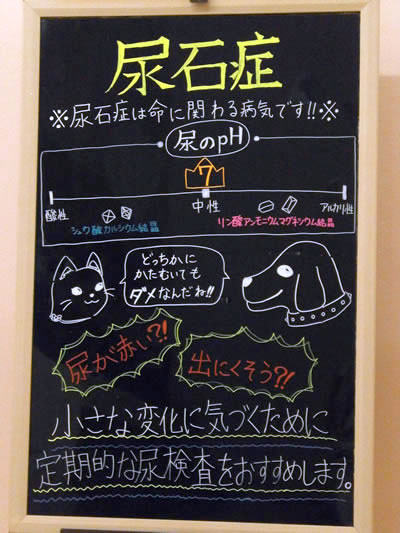 尿石症
※尿石症は命に関わる病気です!!※
尿のpH
7
酸性
中性
アルカリ性
シュウ酸カルシウム結晶
リン酸アンモニウムマグネシウム結晶
どっちかに
かたむいても
ダメなんだね!!
尿が赤い?!
出にくそう?!
小さな変化に気づくために
定期的な尿検査をおすすめします。